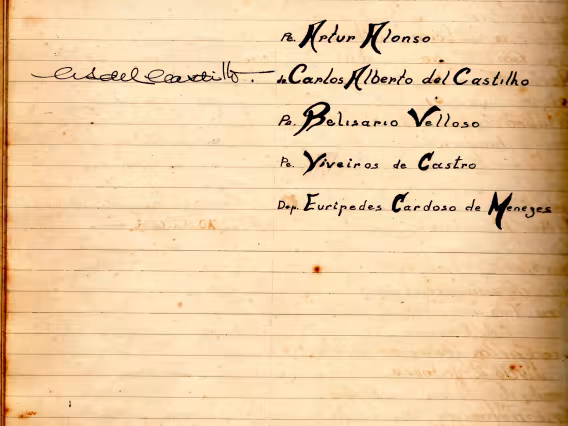 Pe. Artur Alonso
Carlos Alberto del Castilho
Pe. Belisario Velloso
Pe. Viveiros de Castro
Dep. Euripedes Cardoso de Menezes